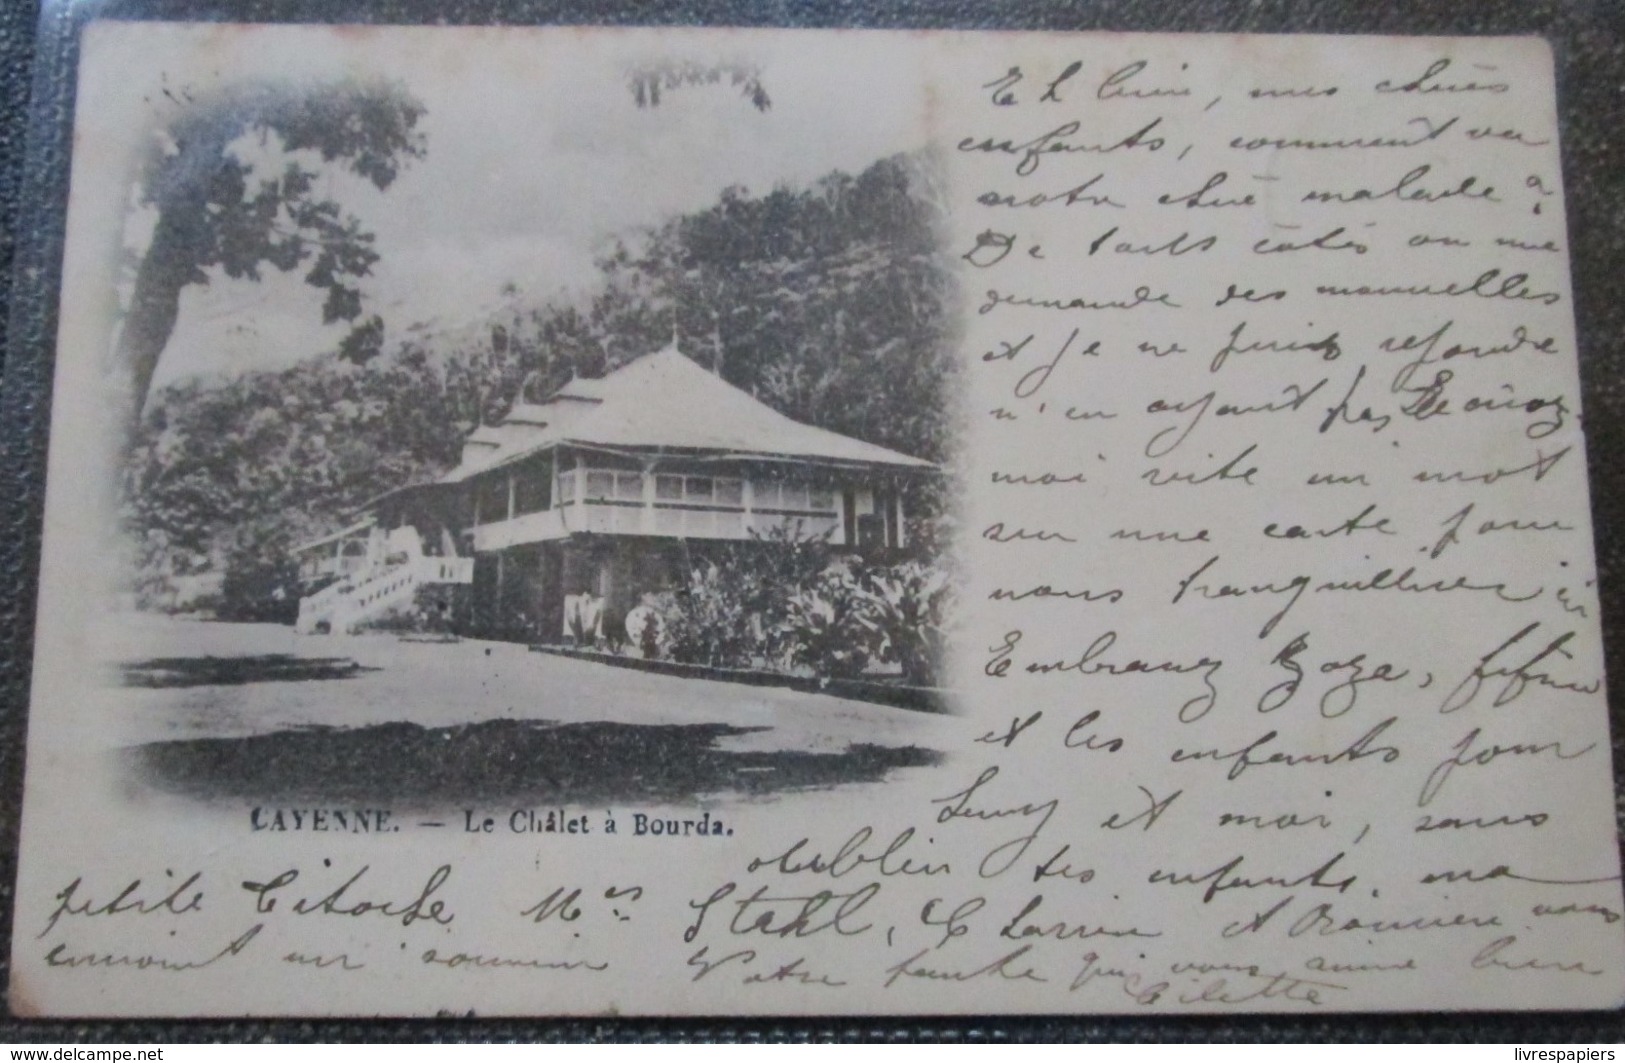 Eh bien, mes chères
enfants, comment va
notre chère malade ?
De touts cotés on me
demande des nouvelles
et je ne puis repondre
n'en ayant pas Ecrivez
moi vite un mot
sur une carte pour
nous tranquilliser
Embrassez Zoze, fifine
et les enfants pour
et moi, sans
oublier tes enfants. ma
petite Titoche Mrs Stahl, et vous
envoient un souvenir Votre tante qui vous aime bien
CAYENNE. — Le Châlet à Bourda.
livrespapiers